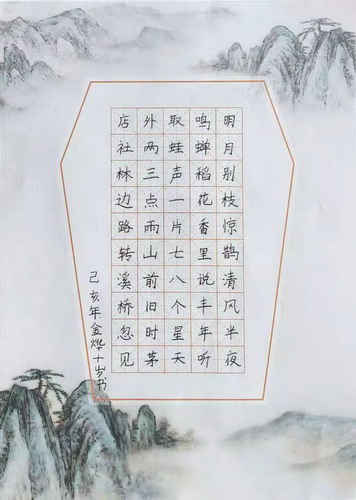 明月别枝惊鹊清风半夜
鸣蝉稻花香里说丰年听
取蛙声一片七八个星天
外两三点雨山前旧时茅
店社林边路转溪桥忽见
己亥年金烨十岁书